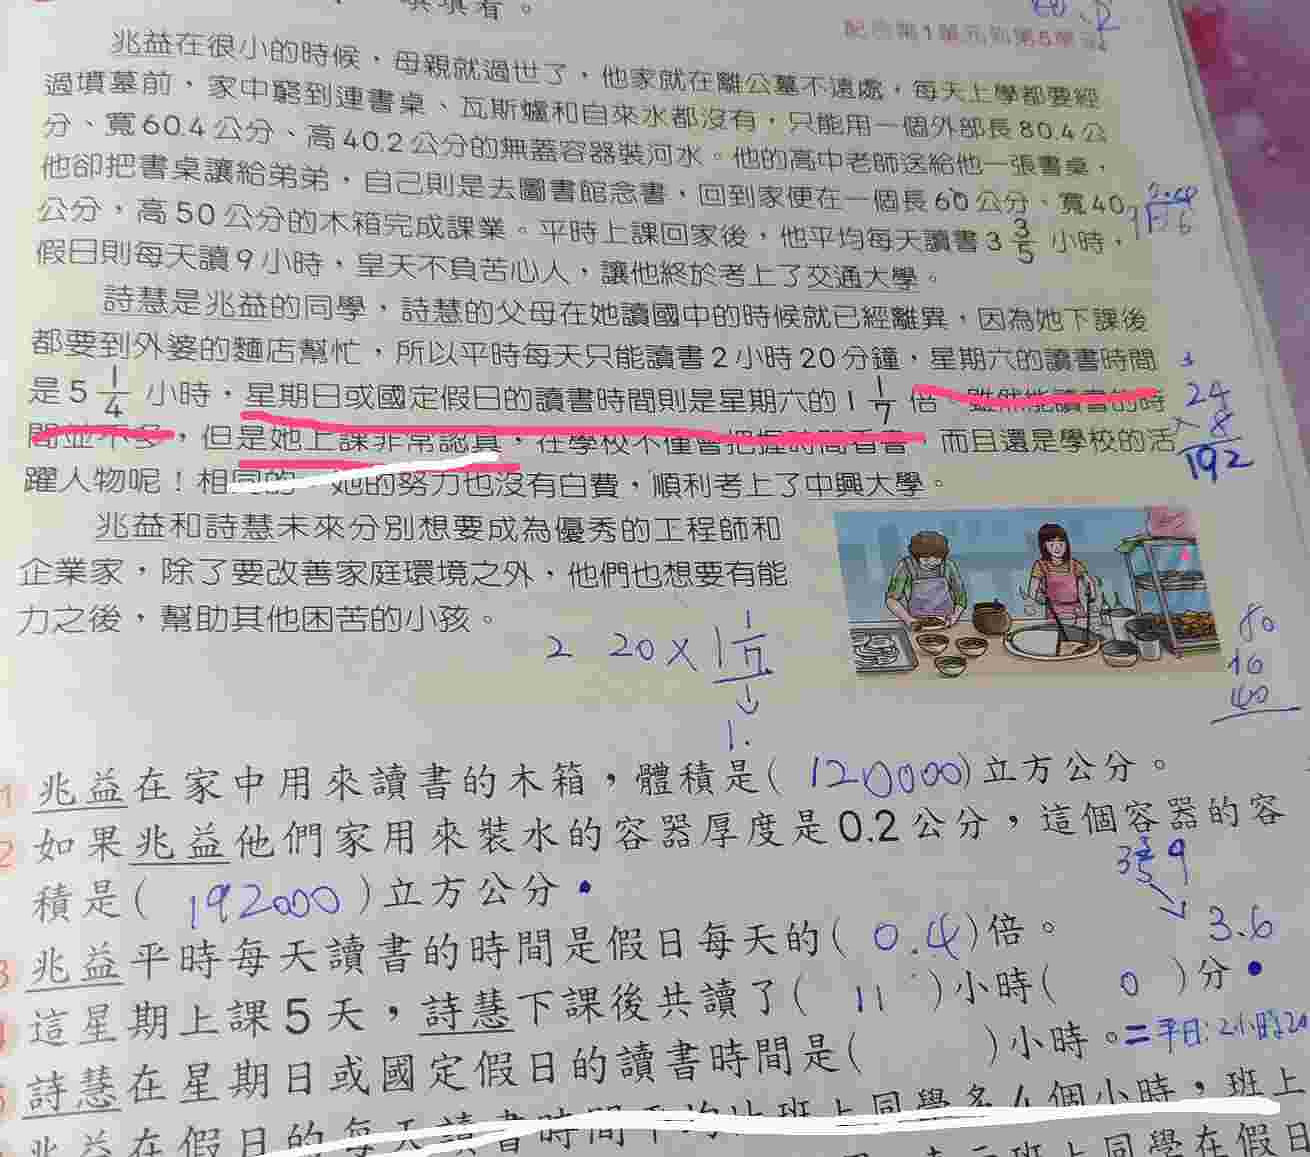 填填看。
配合第1單元到第5單元
兆益在很小的時候，母親就過世了，他家就在離公墓不遠處，每天上學都要經
過墳墓前，家中窮到連書桌、瓦斯爐和自來水都沒有，只能用一個外部長80.4公
分、寬60.4公分、高40.2公分的無蓋容器裝河水。他的高中老師送給他一張書桌，
他卻把書桌讓給弟弟，自己則是去圖書館念書，回到家便在一個長60公分、寬40
公分，高50公分的木箱完成課業。平時上課回家後，他平均每天讀書3 3/5 小時，
假日則每天讀9小時，皇天不負苦心人，讓他終於考上了交通大學。
詩慧是兆益的同學，詩慧的父母在她讀國中的時候就已經離異，因為她下課後
都要到外婆的麵店幫忙，所以平時每天只能讀書2小時20分鐘，星期六的讀書時間
是5 1/4 小時，星期日或國定假日的讀書時間則是星期六的1 1/7 倍，雖然能讀書的時
間並不多，但是她上課非常認真，在學校不僅會把握時間看書，而且還是學校的活
躍人物呢！相同的，她的努力也沒有白費，順利考上了中興大學。
24
×8
192
兆益和詩慧未來分別想要成為優秀的工程師和
企業家，除了要改善家庭環境之外，他們也想要有能
力之後，幫助其他困苦的小孩。
2 20×1 1/7
↓
1.
80
40
1 兆益在家中用來讀書的木箱，體積是(120000)立方公分。
2 如果兆益他們家用來裝水的容器厚度是0.2公分，這個容器的容
積是(192000)立方公分。
3 3/5 9
3.6
3 兆益平時每天讀書的時間是假日每天的(0.4)倍。
這星期上課5天，詩慧下課後共讀了(11)小時(0)分。
詩慧在星期日或國定假日的讀書時間是( )小時。=平日:2小時20
兆益在假日的每天讀書時間平均比班上同學多4個小時，班上
班上同學在假日